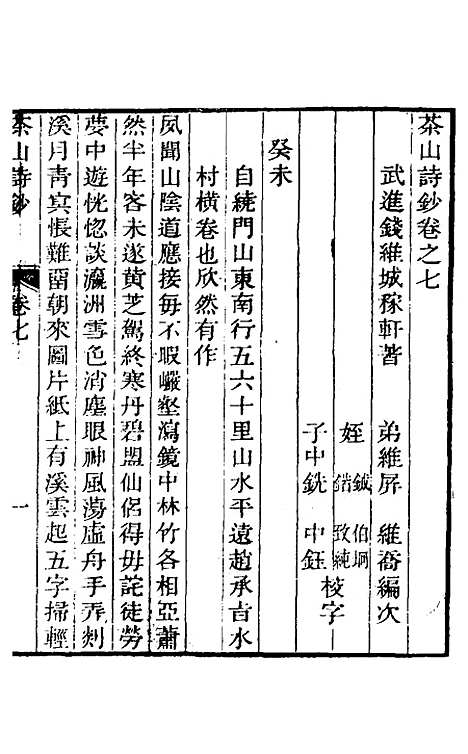 茶山詩鈔卷之七
武進錢維城稼軒著　弟維屏　維喬編次
姪鉞　伯坰
鍇　致純
子中銑　中鈺
校字
癸未
自繞門山東南行五六十里山水平遠趙承旨水
村橫卷也欣然有作
夙聞山陰道應接毎不暇巖壑瀉鏡中林竹各相亞蕭
然半年客未遂黄芝駕終寒丹碧盟仙侶得毋詫徒勞
夢中遊恍惚談瀛洲雪色消塵眼神風蕩虛舟手弄剡
溪月靑冥悵難留朝來圖片紙上有溪雲起五字掃輕
茶山詩鈔　卷七　一